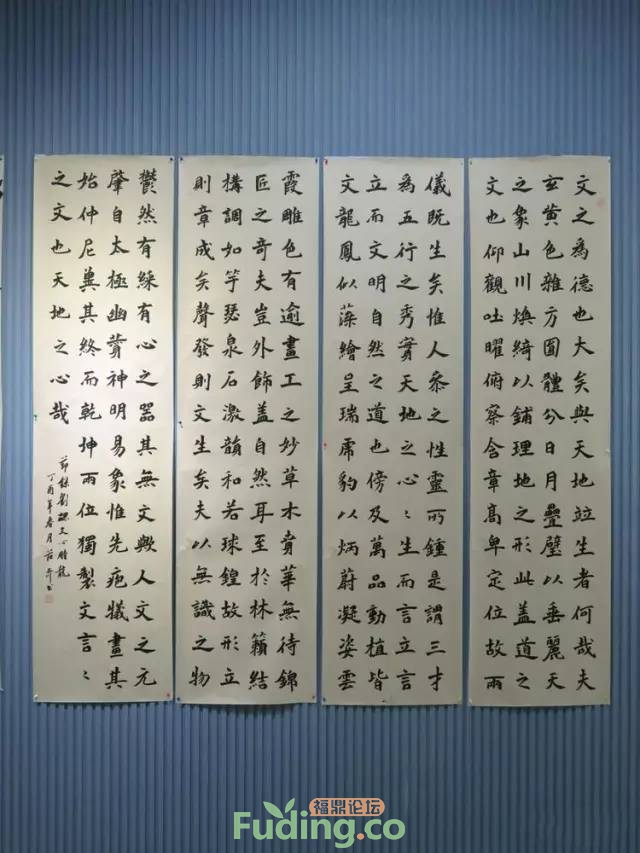 文之為德也大矣與天地竝生者何哉夫
玄黃色雜方圓體分日月疊璧以垂麗天
之象山川煥綺以鋪理地之形此盖道之
文也仰觀吐曜俯察含章高卑定位故兩
儀既生矣惟人參之性靈所鍾是謂三才
為五行之秀實天地之心々生而言立言
立而文明自然之道也傍及萬品動植皆
文龍鳳以藻繪呈瑞虎豹以炳蔚凝姿雲
霞雕色有逾畫工之妙草木賁華無待錦
匠之奇夫豈外飾盖自然耳至於林籟結
構調如竽瑟泉石激韻和若球鍠故形立
則章成矣聲發則文生矣夫以無識之物
鬱然有綵有心之器其無文歟人文之元
肇自太極幽贊神明易象惟先庖犧畫其
始仲尼翼其終而乾坤兩位獨製文言々
之文也天地之心哉
節錄劉勰文心雕龍
丁酉年春月
福鼎论坛
Fuding.co